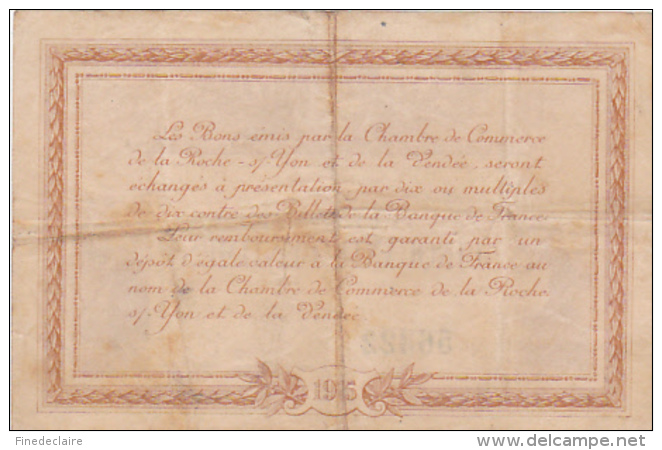 Les Bons émis par la Chambre de Commerce
de la Roche-s/-Yon et de la Vendée, seront
échangés à présentation par dix ou multiples
de dix contre des Billets de la Banque de France.
Leur remboursement est garanti par un
dépôt d'égale valeur à la Banque de France au
nom de la Chambre de Commerce de la Roche
s/-Yon et de la Vendée
1915
Finedeclaire
www.delcampe.net